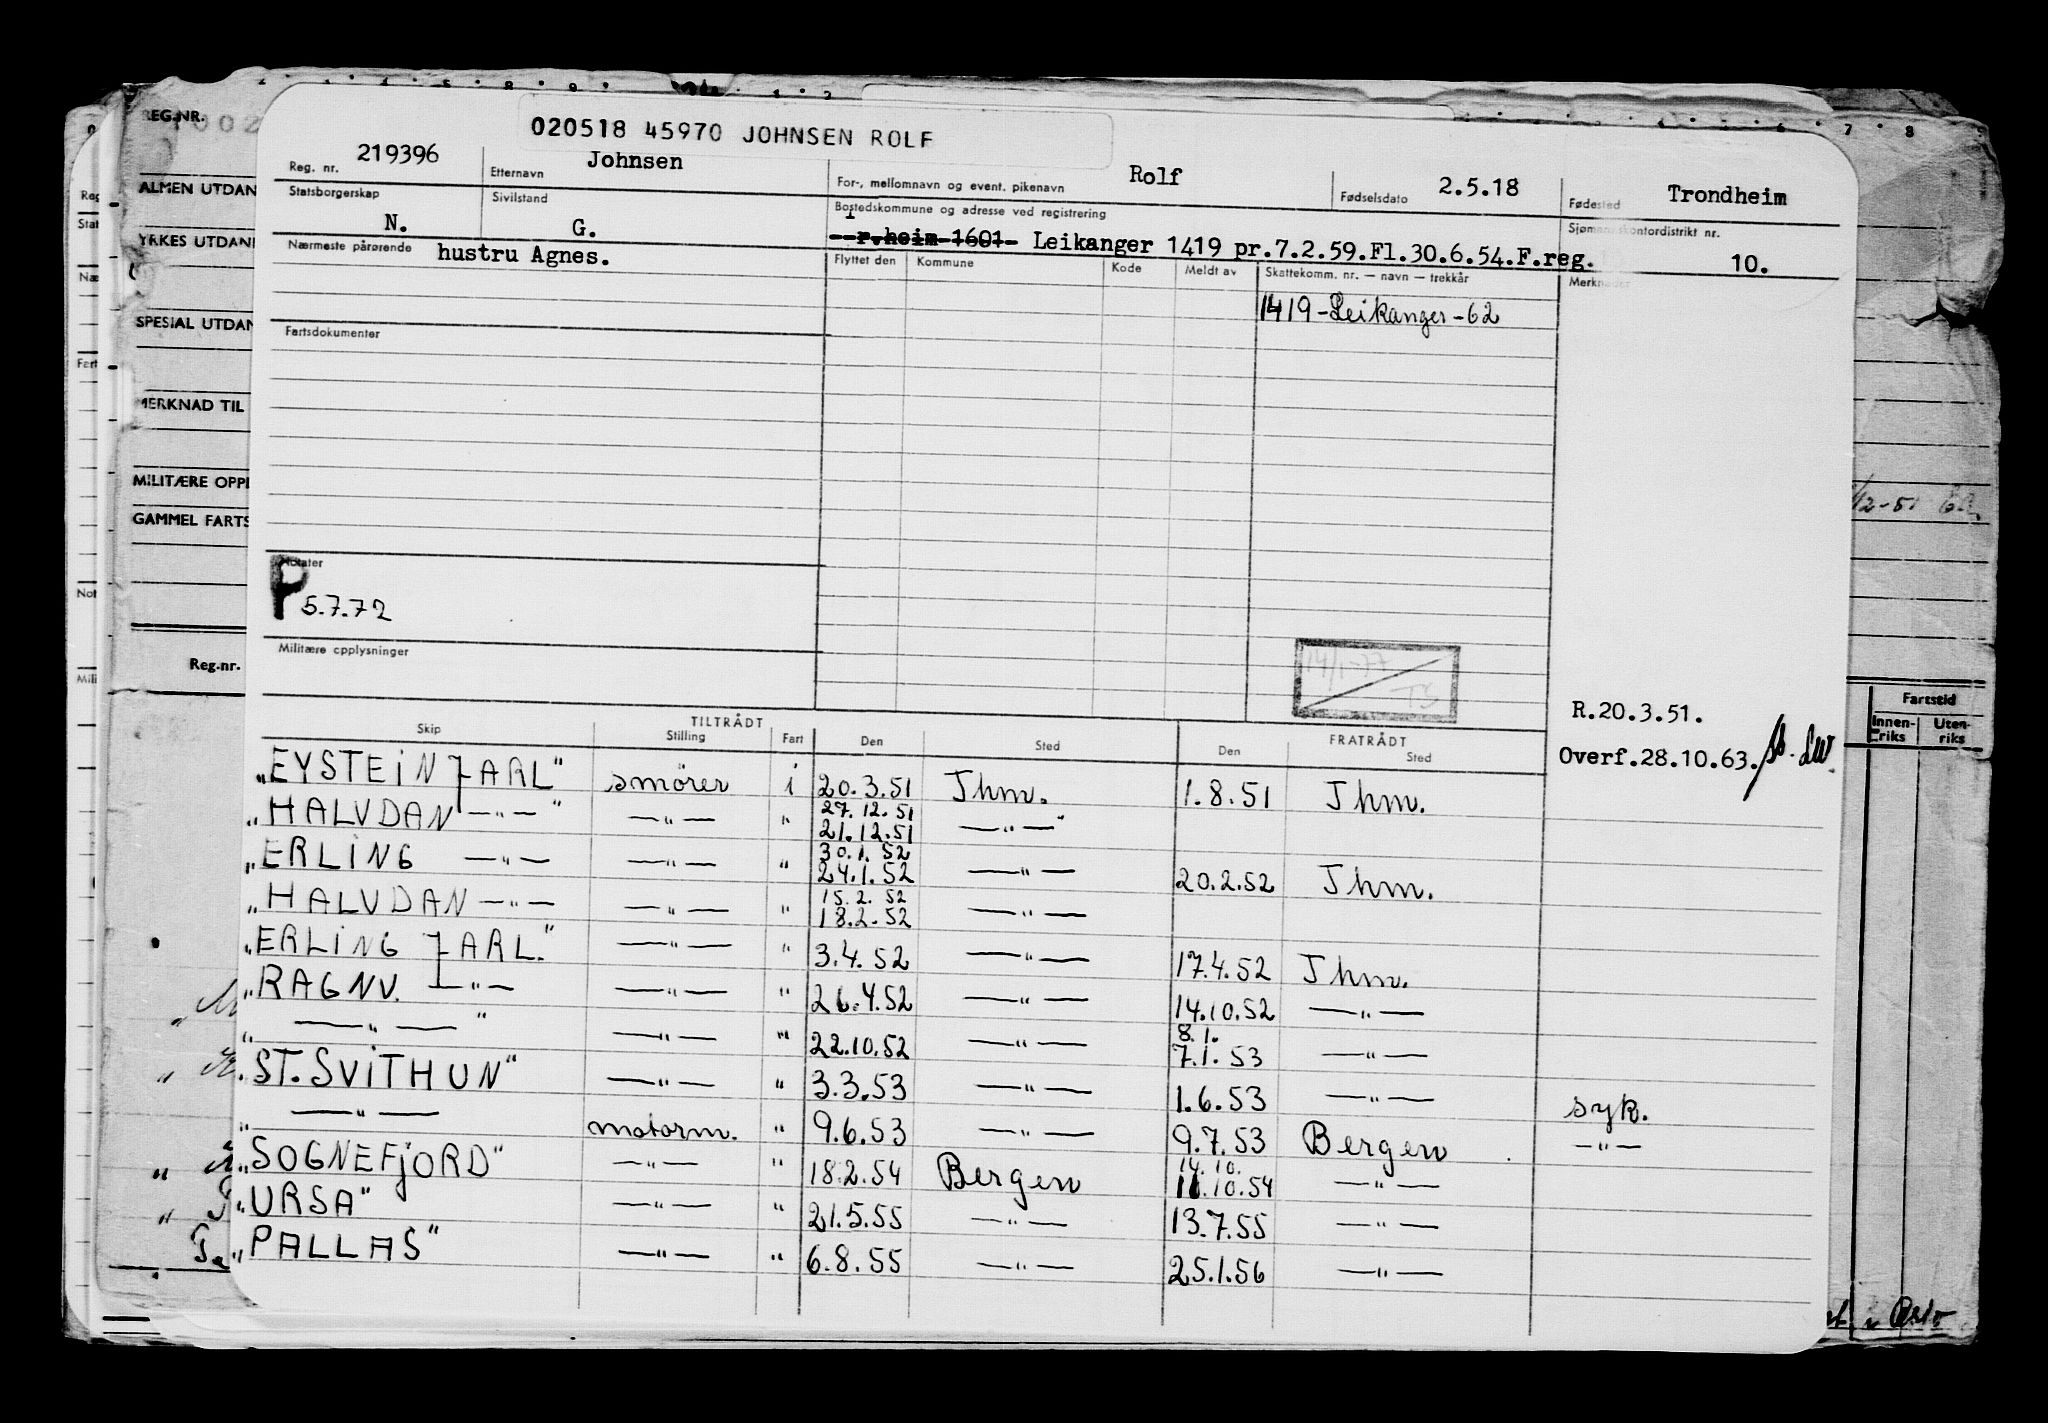 REG.NR.
020518 45970 JOHNSEN ROLF
Reg. nr. 219396 Etternavn Johnsen For-, mellomnavn og event. pikenavn Rolf Fødselsdato 2.5.18 Fødested Trondheim
ALMEN UTDAN
Statsborgerskap N. Sivilstand G. Bostedskommune og adresse ved registrering Sjømannskontordistrikt nr. 10.
YRKES UTDAN
r.heim 1601 Leikanger 1419 pr.7.2.59.Fl.30.6.54.F.reg.
Nærmeste pårørende hustru Agnes. Flyttet den Kommune Kode Meldt av Skattekomm. nr. — navn — trekkår Merknader
1419-Leikanger-62
SPESIAL UTDAN
Fartsdokumenter
MERKNAD TIL
MILITÆRE OPPL
GAMMEL FARTS
Notater
P 5.7.72
Militære opplysninger
14/1-77
TS
Reg.nr.
R.20.3.51.
Overf.28.10.63.
Fartstid
Innenriks Utenriks
TILTRÅDT FRATRÅDT
Skip Stilling Fart Den Sted Den Sted
„EYSTEIN JARL" smörer i 20.3.51 Thm. 1.8.51 Thm.
„HALVDAN —"— " —"— " 27.12.51 21.12.51 —"—"
„ERLING —"— —"— " 30.1.52 24.1.52 —"— 20.2.52 Thm.
„HALVDAN —"— —"— " 15.2.52 18.2.52 —"—
„ERLING JARL." —"— " 3.4.52 —"— 17.4.52 Thm.
„RAGNV. —"— —"— " 26.4.52 —"— 14.10.52 —"—
„ —"— " —"— " 22.10.52 —"— 8.1. 7.1.53 —"—
„ST. SVITHUN" —"— " 3.3.53 —"— 1.6.53 —"— syk.
„ —"— motorm. " 9.6.53 —"— 9.7.53 Bergen —"—
„SOGNEFJORD" —"— " 18.2.54 Bergen 14.10. 11.10.54 —"—
„URSA" —"— " 21.5.55 —"— 13.7.55 —"—
„PALLAS" —"— " 6.8.55 —"— 25.1.56 —"—